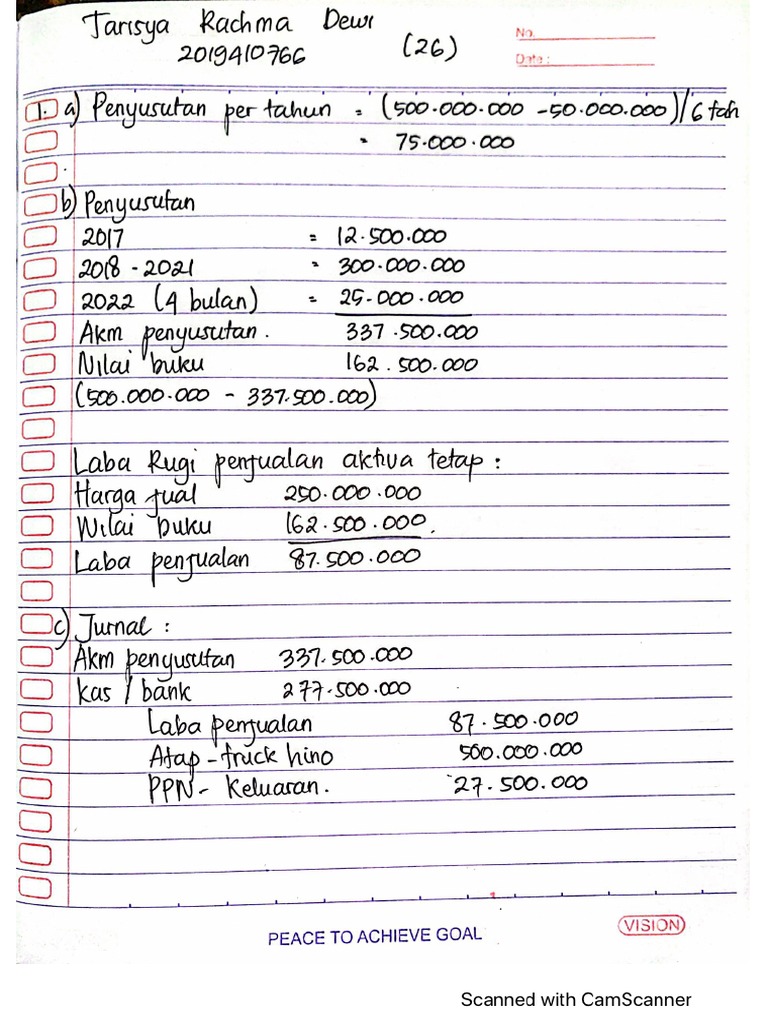 Tarisya Rachma Dewi
2019410766 (26)
No.
Date:
1. a) Penyusutan per tahun = (500.000.000 - 50.000.000)/6 tah
= 75.000.000
b) Penyusutan
2017 = 12.500.000
2018 - 2021 = 300.000.000
2022 (4 bulan) = 25.000.000
Akm penyusutan. 337.500.000
Nilai buku 162.500.000
(500.000.000 - 337.500.000)
Laba Rugi penjualan aktiva tetap :
Harga jual 250.000.000
Nilai buku 162.500.000.
Laba penjualan 87.500.000
c) Jurnal :
Akm penyusutan 337.500.000
kas / bank 277.500.000
Laba penjualan 87.500.000
Atap - truck hino 500.000.000
PPN - Keluaran. 27.500.000
PEACE TO ACHIEVE GOAL
VISION
Scanned with CamScanner